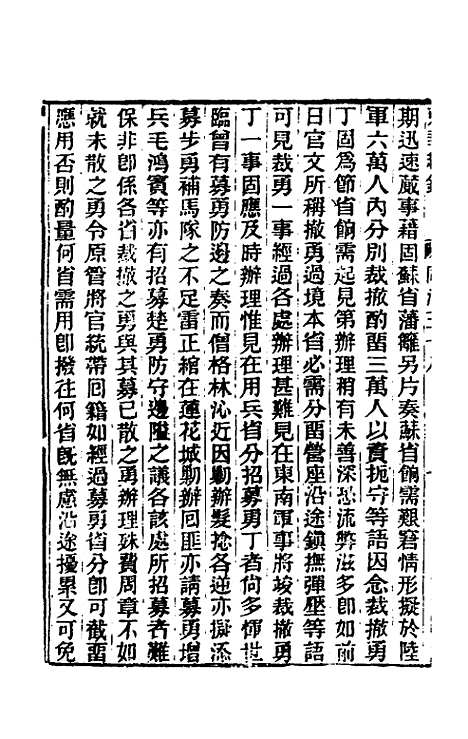 期迅速蕆事藉固蘇省藩籬另片奏蘇省餉需艱窘情形擬於陸
軍六萬人內分別裁撤酌畱三萬人以資扼守等語因念裁撤勇
丁固爲節省餉需起見第辦理稍有未善深恐流弊滋多卽如前
日官文所稱撤勇過境本省必需分畱營座沿途鎭撫彈壓等語
可見裁勇一事經過各處辦理甚難見在東南軍事將竣裁撤勇
丁一事固應及時辦理惟見在用兵省分招募勇丁者尙多惲世
臨曾有募勇防邊之奏而僧格林沁近因勦辦髮捻各逆亦擬添
募步勇補馬隊之不足雷正綰在蓮花城勦辦回匪亦請募勇增
兵毛鴻賓等亦有招募楚勇防守邊隘之議各該處所招募者難
保非卽係各省裁撤之勇與其募已散之勇辦理殊費周章不如
就未散之勇令原管將官統帶回籍如經過募勇省分卽可截畱
應用否則酌量何省需用卽撥往何省旣無慮沿途擾累又可免